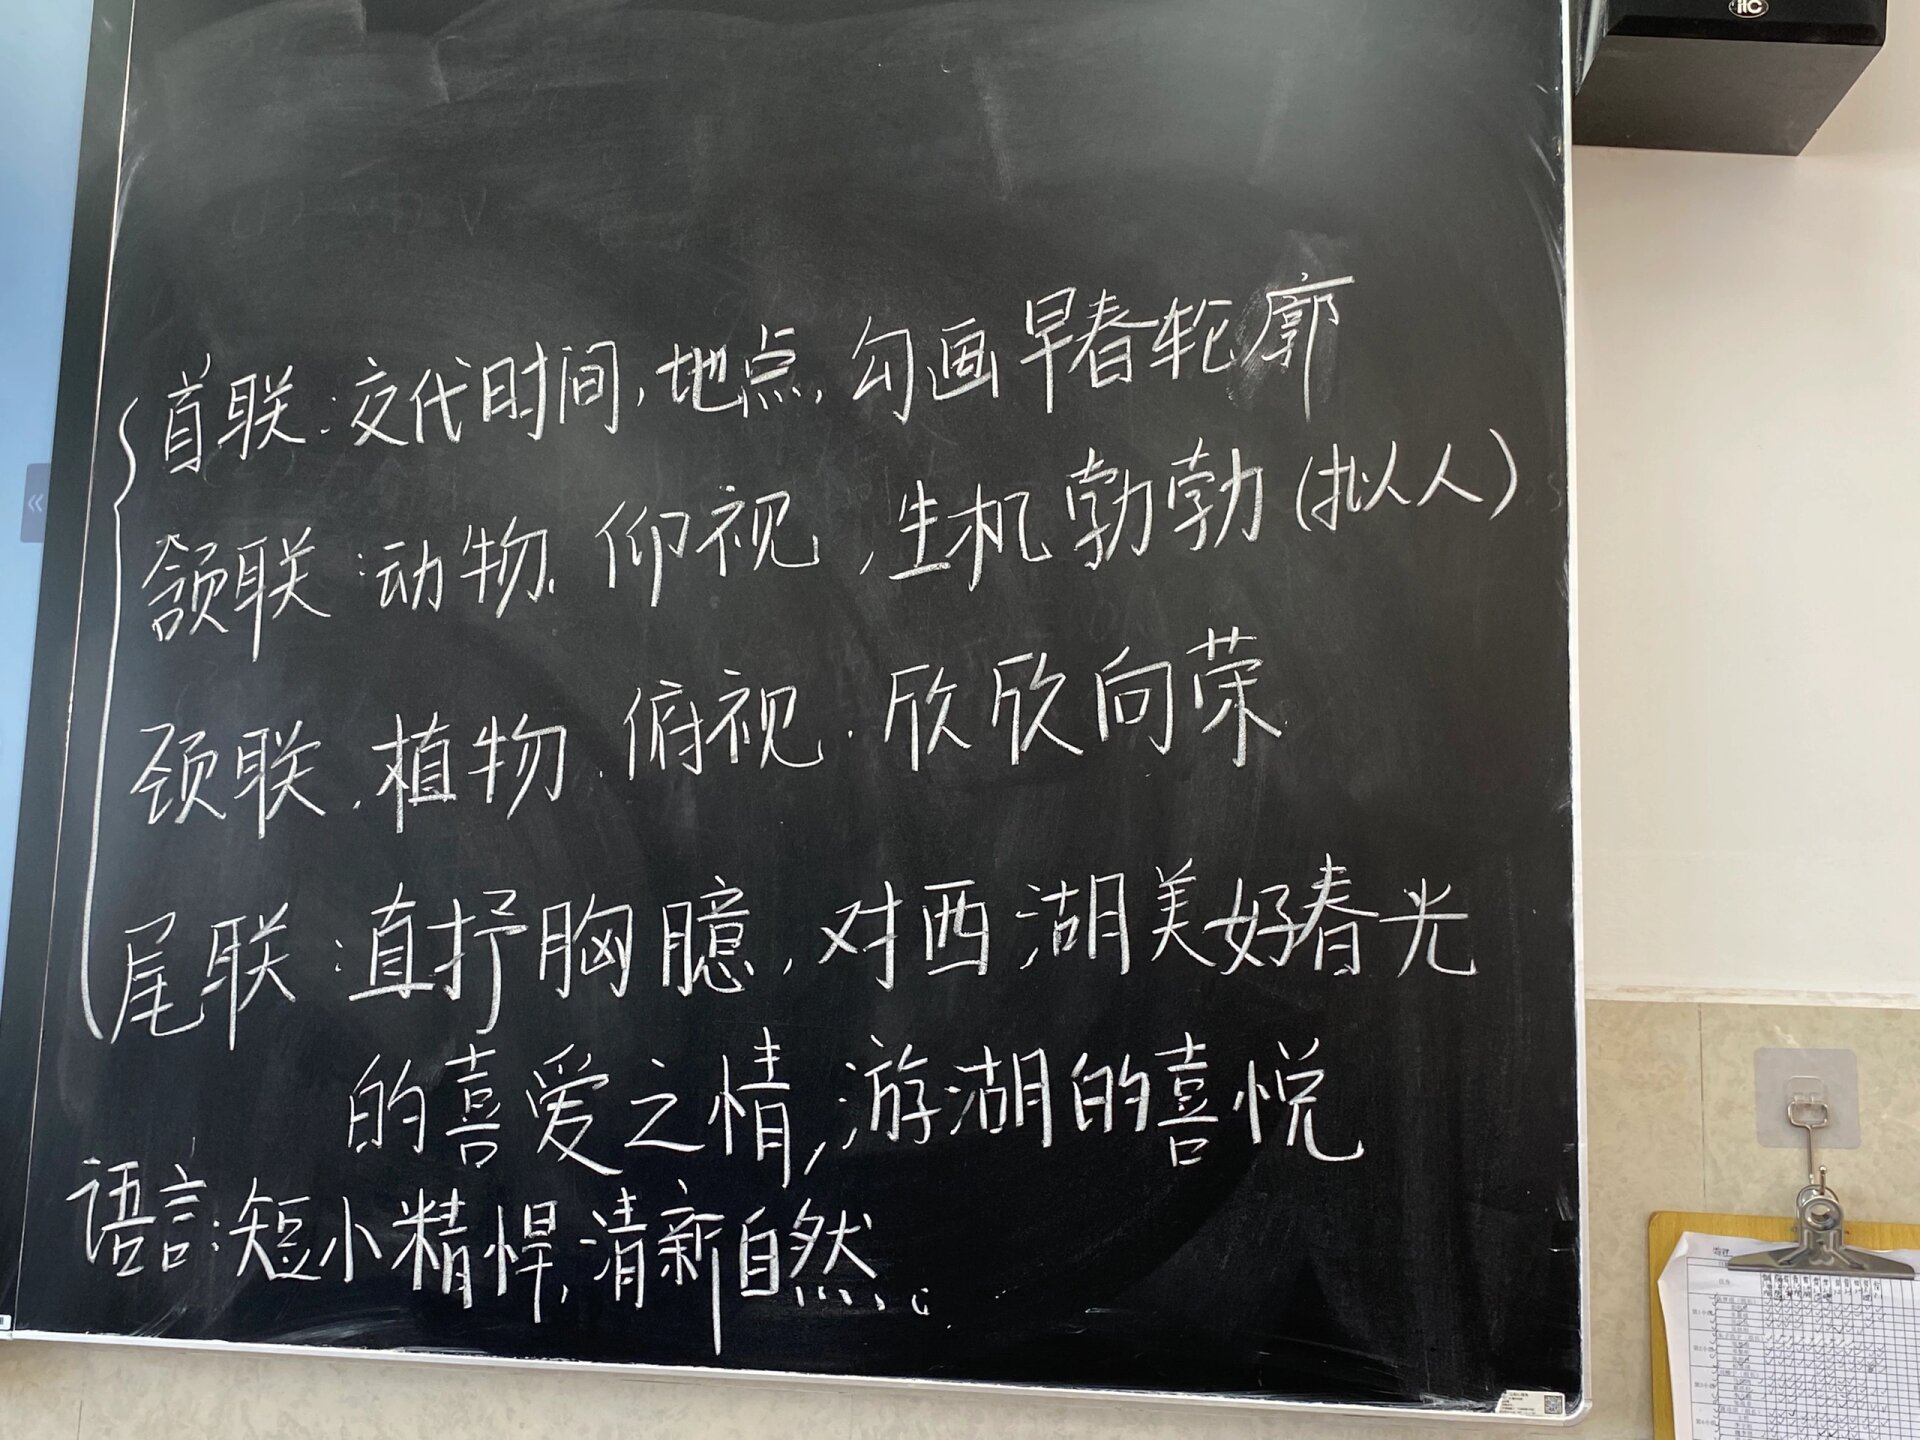 itc
首联:交代时间,地点,勾画早春轮廓
颔联:动物、仰视,生机勃勃(拟人)
颈联、植物、俯视、欣欣向荣
尾联:直抒胸臆,对西湖美好春光
的喜爱之情,游湖的喜悦
语言:短小精悍,清新自然。